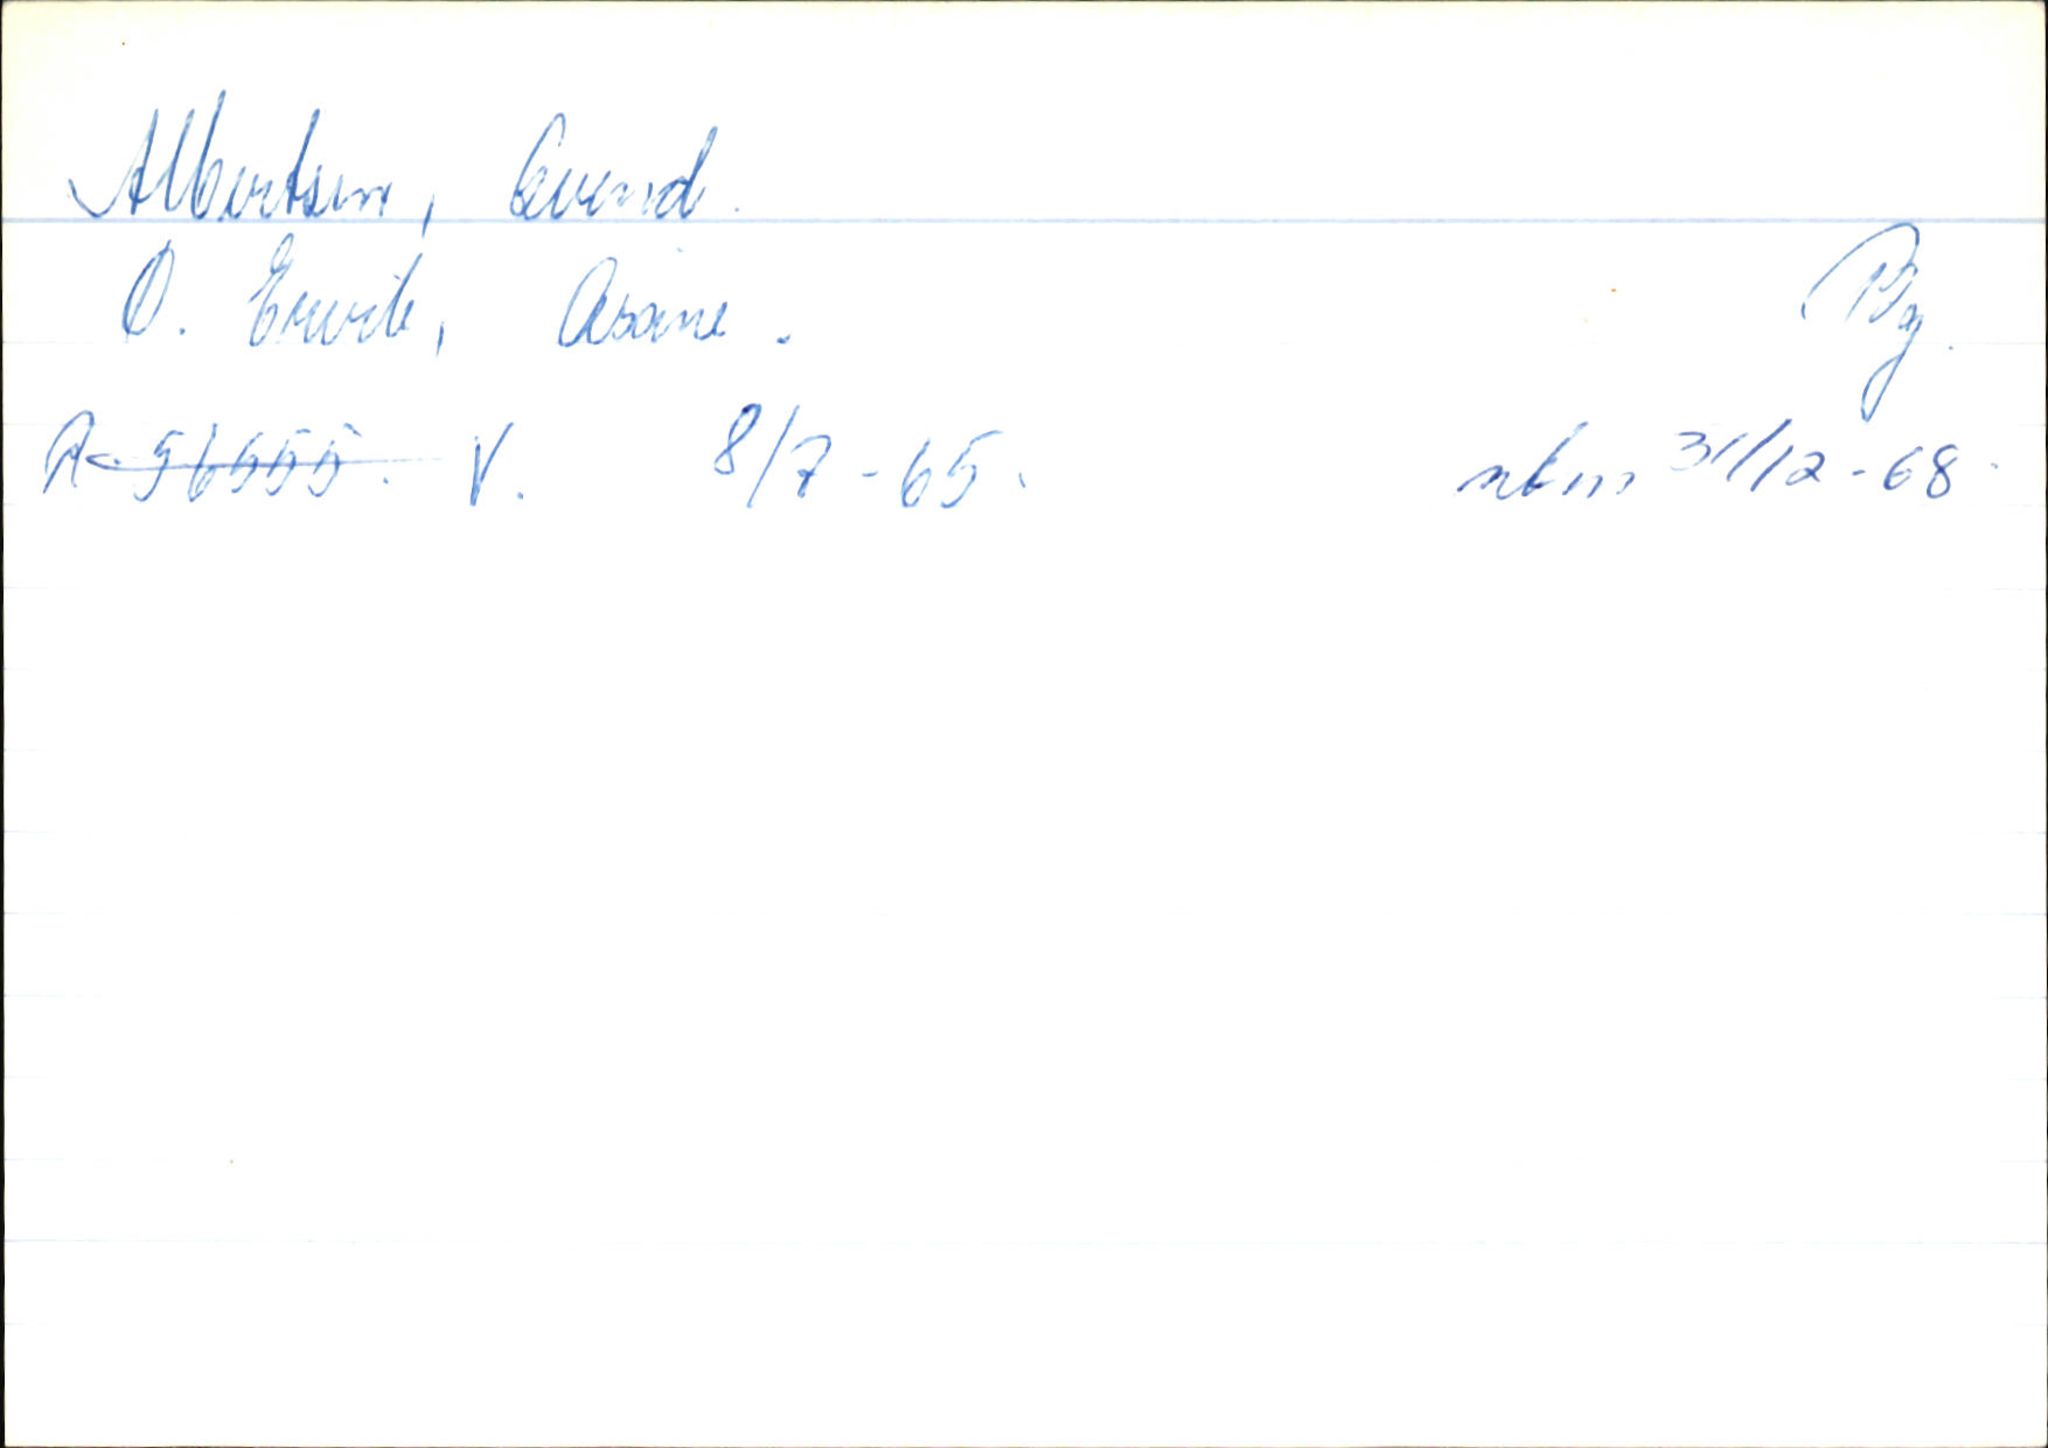 Albertsen, Svend.
Ø. Ervik, Åsane.
Py.
A-56555. V. 8/7-65. nkm 31/12-68.